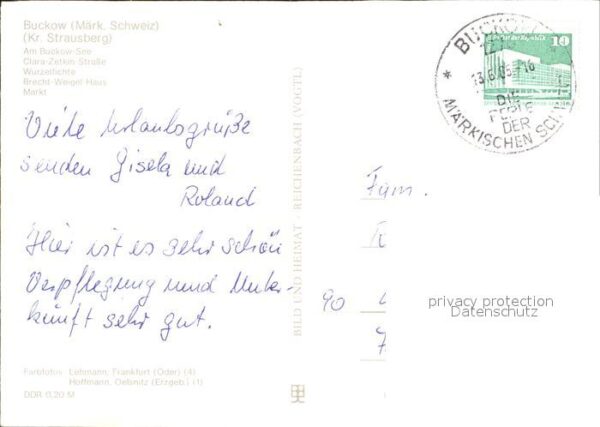 Buckow (Märk. Schweiz)
(Kr. Strausberg)
Am Buckow-See
Clara-Zetkin Straße
Wurzelfichte
Brecht-Weigel Haus
Markt
Viele Urlaubsgrüße
senden Gisela und
Roland
Hier ist es sehr schön
Verpflegung und Unter-
kunft sehr gut.
Farbfotos: Lehmann, Frankfurt (Oder) (4)
Hoffmann, Oelsnitz (Erzgeb.) (1)
DDR 0,20 M
BILD UND HEIMAT · REICHENBACH (VOGTL)
10
BUCKOW
DIE
PERLE
DER
MÄRKISCHEN SCHWEIZ
Fam.
90
privacy protection
Datenschutz